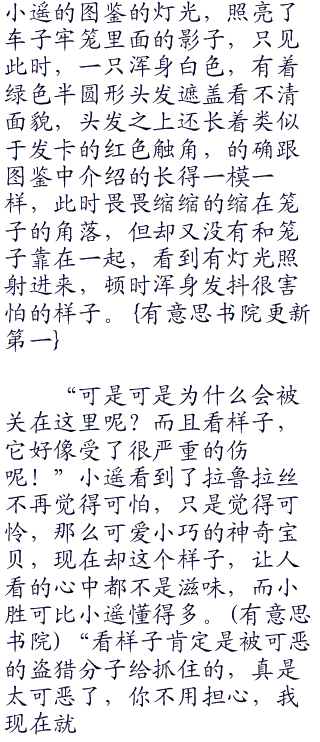 小遥的图鉴的灯光，照亮了
车子牢笼里面的影子，只见
此时，一只浑身白色，有着
绿色半圆形头发遮盖看不清
面貌，头发之上还长着类似
于发卡的红色触角，的确跟
图鉴中介绍的长得一模一
样，此时畏畏缩缩的缩在笼
子的角落，但却又没有和笼
子靠在一起，看到有灯光照
射进来，顿时浑身发抖很害
怕的样子。{有意思书院更新
第一}
“可是可是为什么会被
关在这里呢？而且看样子，
它好像受了很严重的伤
呢！”小遥看到了拉鲁拉丝
不再觉得可怕，只是觉得可
怜，那么可爱小巧的神奇宝
贝，现在却这个样子，让人
看的心中都不是滋味，而小
胜可比小遥懂得多。(有意思
书院)“看样子肯定是被可恶
的盗猎分子给抓住的，真是
太可恶了，你不用担心，我
现在就